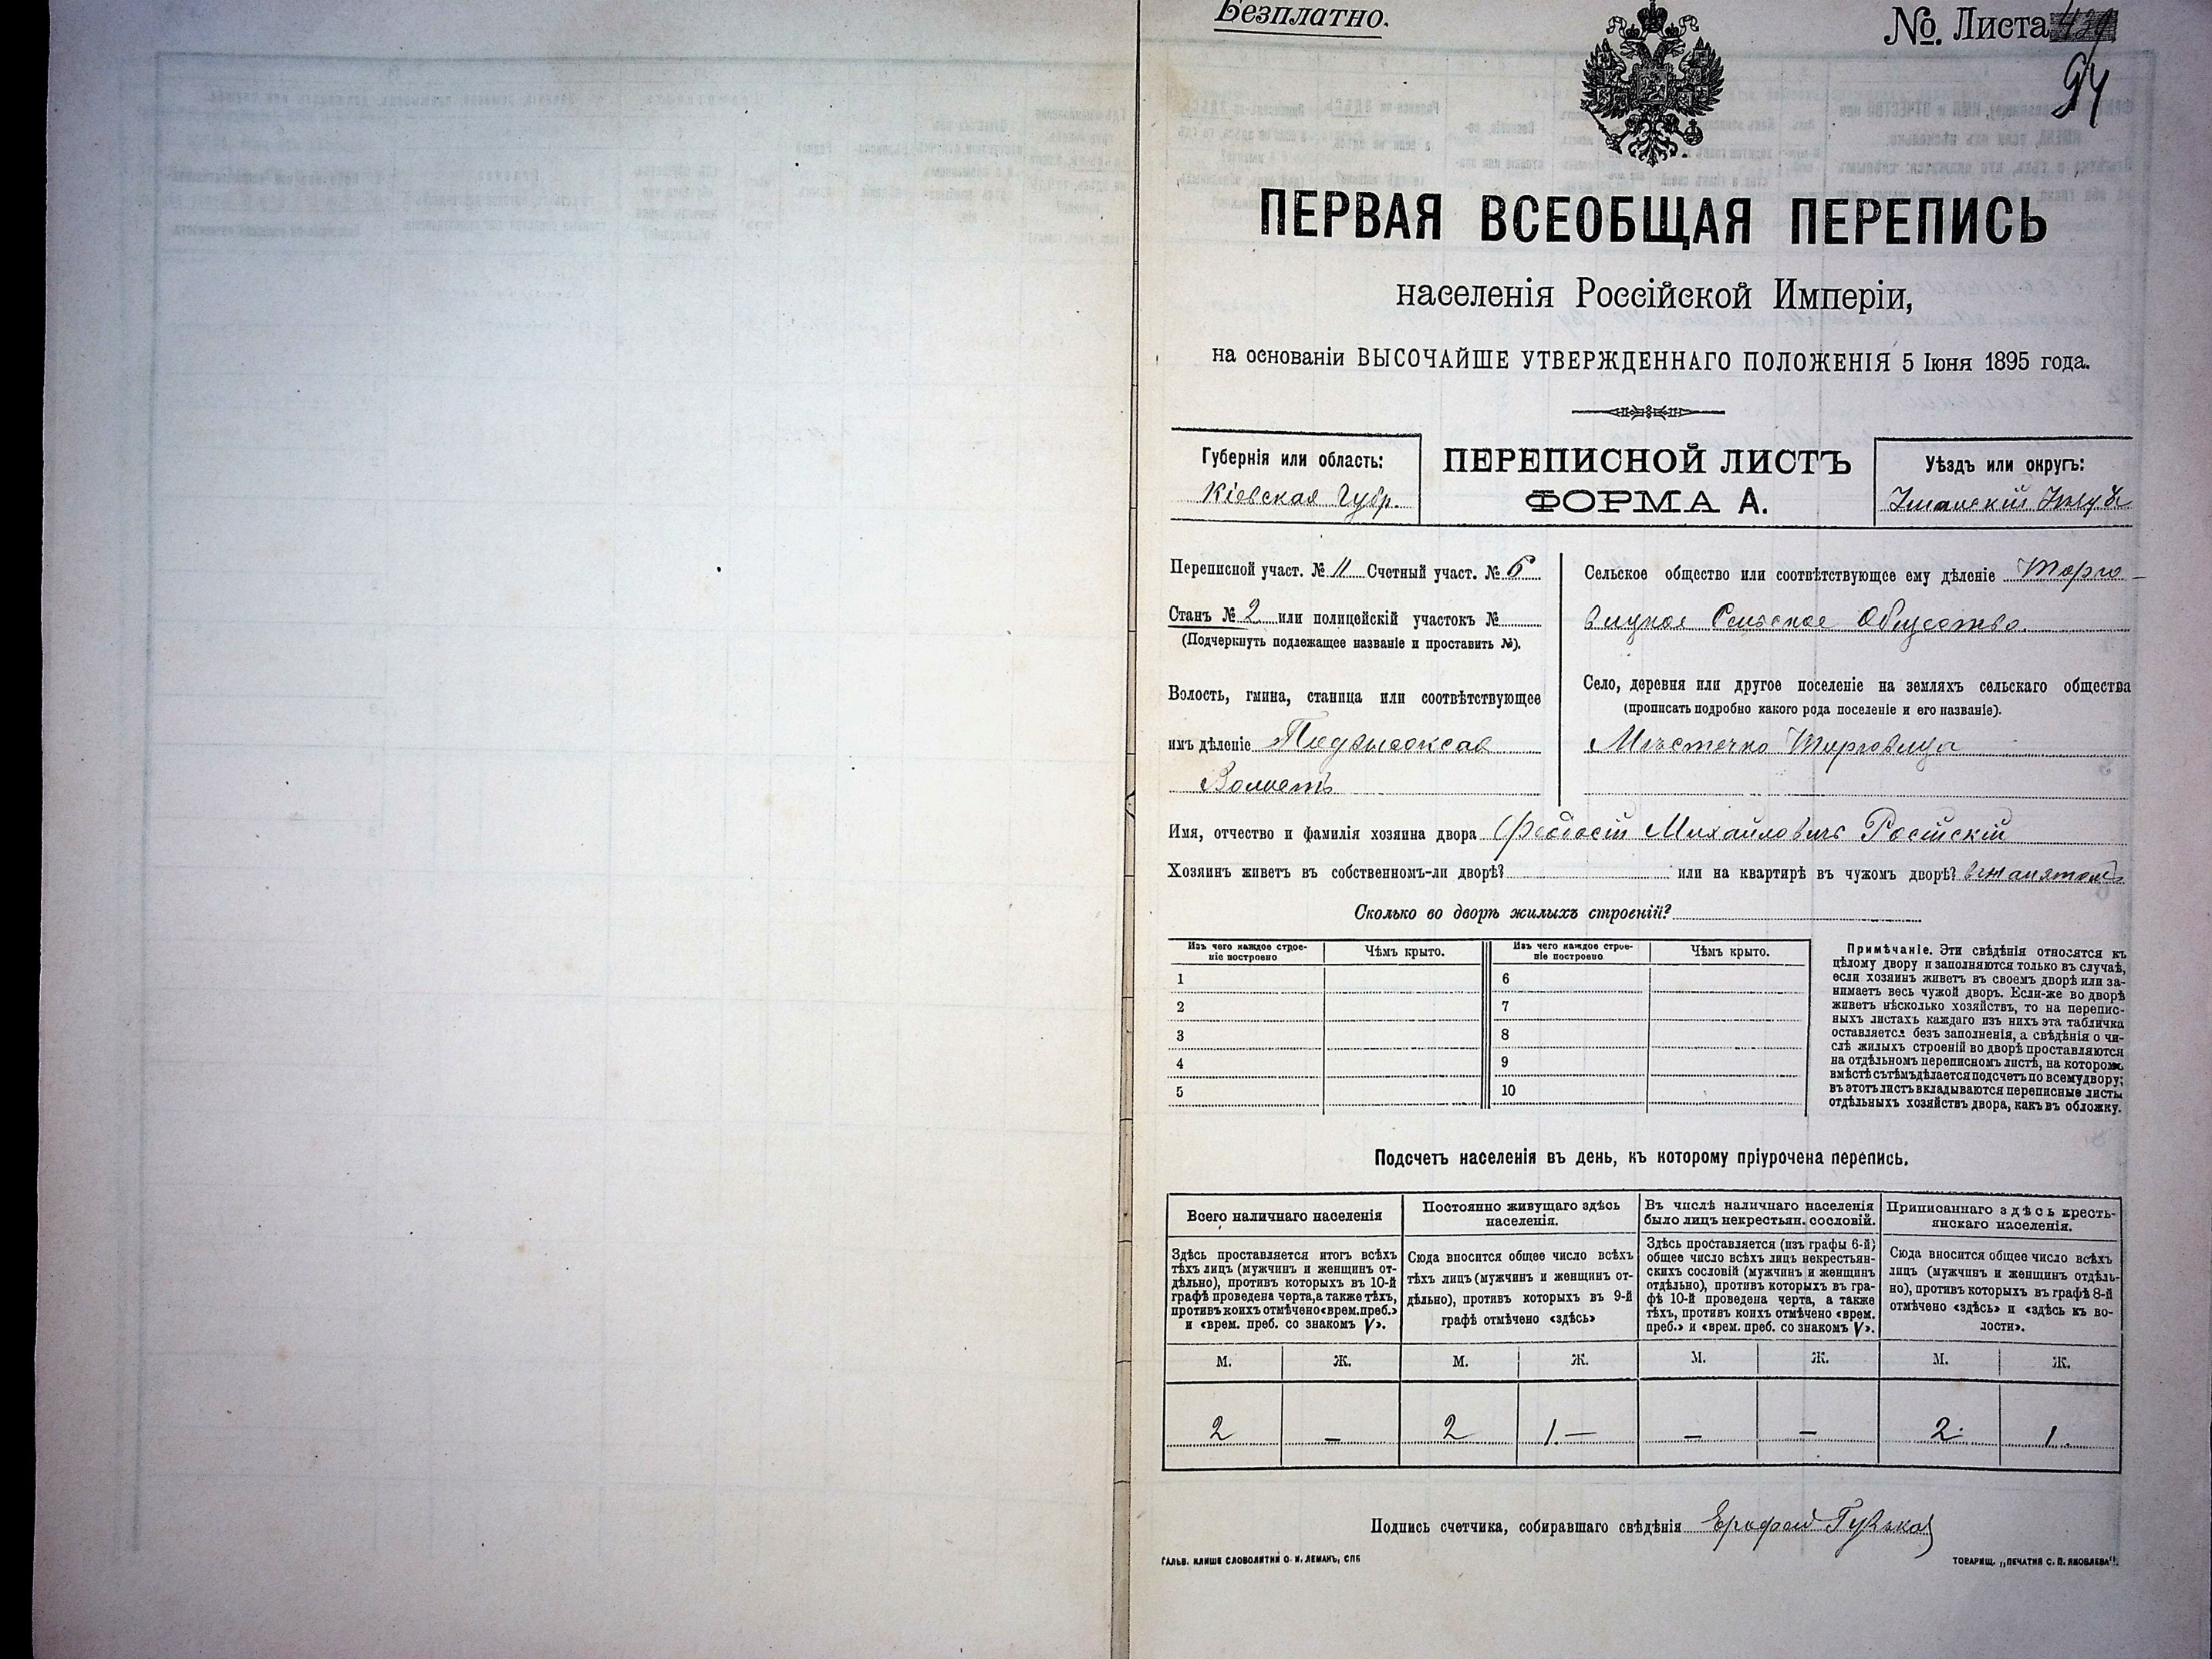 Безплатно.
№ Листа
94
ПЕРВАЯ ВСЕОБЩАЯ ПЕРЕПИСЬ
населенія Россійской Имперіи,
на основаніи ВЫСОЧАЙШЕ УТВЕРЖДЕННАГО ПОЛОЖЕНІЯ 5 Іюня 1895 года.
Губернія или область:
Кіевская Губр.
ПЕРЕПИСНОЙ ЛИСТЪ
ФОРМА А.
Уѣздъ или округъ:
Уманскій Уѣздъ
Переписной участ. № 11 Счетный участ. № 6
Станъ № 2 или полицейскій участокъ №
(Подчеркнуть подлежащее названіе и проставить №).
Волость, гмина, станица или соотвѣтствующее
имъ дѣленіе Подвысоксая
Волость
Сельское общество или соотвѣтствующее ему дѣленіе Торго-
вицкое Сельское Общество.
Село, деревня или другое поселеніе на земляхъ сельскаго общества
(прописать подробно какого рода поселеніе и его названіе).
Мѣстечко Торговица
Имя, отчество и фамилія хозяина двора Феодосій Михайловичъ Російскій
Хозяинъ живетъ въ собственномъ-ли дворѣ? или на квартирѣ въ чужомъ дворѣ?
Сколько во дворѣ жилыхъ строеній?
Изъ чего каждое строе-
ніе построено
Чѣмъ крыто.
Изъ чего каждое строе-
ніе построено
Чѣмъ крыто.
1
6
2
7
3
8
4
9
5
10
Примѣчаніе. Эти свѣдѣнія относятся къ
цѣлому двору и заполняются только въ случаѣ,
если хозяинъ живетъ въ своемъ дворѣ или за-
нимаетъ весь чужой дворъ. Если-же во дворѣ
живетъ нѣсколько хозяйствъ, то на перепис-
ныхъ листахъ каждаго изъ нихъ эта табличка
оставляется безъ заполненія, а свѣдѣнія о чи-
слѣ жилыхъ строеній во дворѣ проставляются
на отдѣльномъ переписномъ листѣ, на которомъ
вмѣстѣ съ тѣмъ дѣлается подсчетъ по всему двору;
въ этотъ листъ вкладываются переписные листы
отдѣльныхъ хозяйствъ двора, какъ въ обложку.
Подсчетъ населенія въ день, къ которому пріурочена перепись.
Всего наличнаго населенія
Здѣсь проставляется итогъ всѣхъ
тѣхъ лицъ (мужчинъ и женщинъ от-
дѣльно), противъ которыхъ въ 10-й
графѣ проведена черта, а также тѣхъ,
противъ коихъ отмѣчено «врем. преб.»
и «врем. преб. со знакомъ V».
Постоянно живущаго здѣсь
населенія.
Сюда вносится общее число всѣхъ
тѣхъ лицъ (мужчинъ и женщинъ от-
дѣльно), противъ которыхъ въ 9-й
графѣ отмѣчено «здѣсь»
Въ числѣ наличнаго населенія
было лицъ некрестьян. сословій.
Здѣсь проставляется (изъ графы 6-й)
общее число всѣхъ лицъ некрестьян-
скихъ сословій (мужчинъ и женщинъ
отдѣльно), противъ которыхъ въ гра-
фѣ 10-й проведена черта, а также
тѣхъ, противъ коихъ отмѣчено «врем.
преб.» и «врем. преб. со знакомъ V».
Приписаннаго здѣсь кресть-
янскаго населенія.
Сюда вносится общее число всѣхъ
лицъ (мужчинъ и женщинъ отдѣль-
но), противъ которыхъ въ графѣ 8-й
отмѣчено «здѣсь» и «здѣсь къ во-
лости».
М. Ж. М. Ж. М. Ж. М. Ж.
2 — 2 1.— — — 2. 1.
Подпись счетчика, собиравшаго свѣдѣнія
ГАЛЬВ. КЛИШЕ СЛОВОЛИТНИ О. И. ЛЕМАНЪ, СПБ
ТОВАРИЩ. „ПЕЧАТНЯ С. П. ЯКОВЛЕВА“.